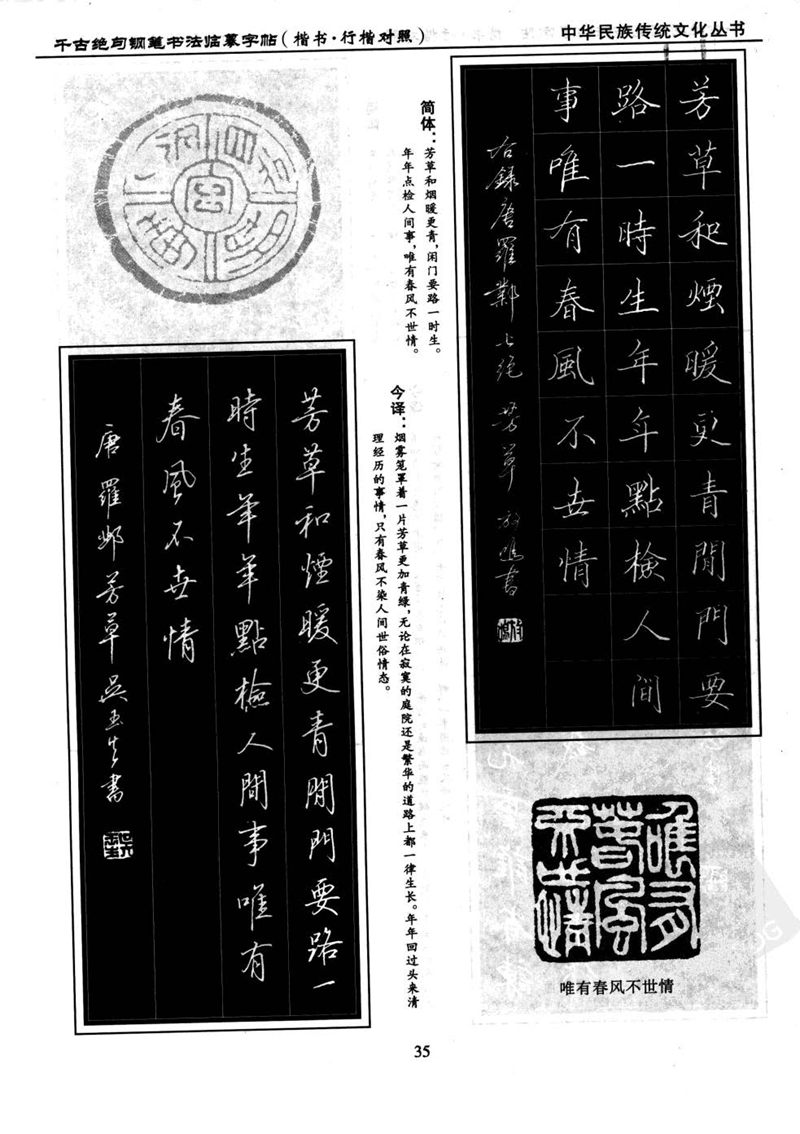 千古绝句钢笔书法临摹字帖(楷书·行楷对照)
中华民族传统文化丛书
芳草和煙暖更青閒門要
路一時生年年點檢人間
事唯有春風不世情
右錄唐羅鄴七絕芳草
简体：芳草和烟暖更青，闲门要路一时生。
年年点检人间事，唯有春风不世情。
今译：烟雾笼罩着一片芳草更加青绿，无论在寂寞的庭院还是繁华的道路上都一律生长。年年回过头来清
理经历的事情，只有春风不染人间世俗情态。
芳草和煙暖更青閒門要路一
時生年年點檢人間事唯有
春風不世情
唐羅鄴芳草吴玉生書
唯有
春風
不世情
唯有春风不世情
35